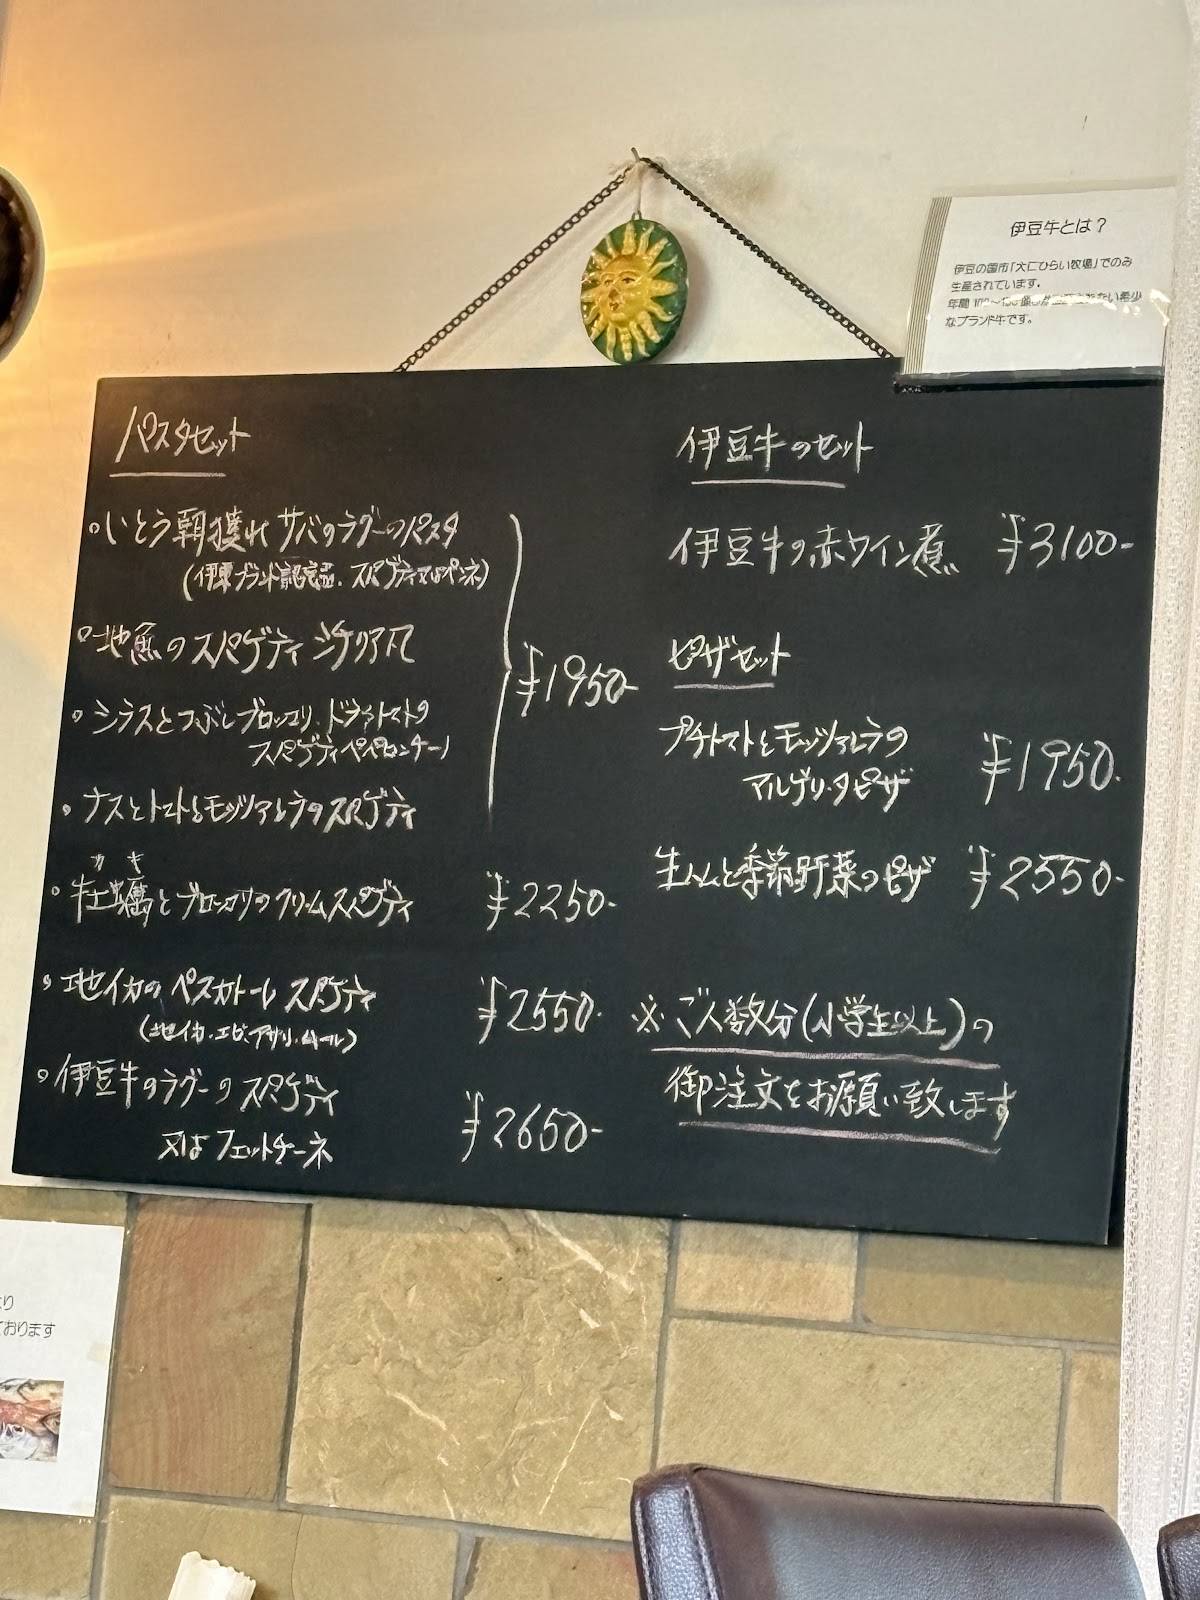 伊豆牛とは？
伊豆の国市「大仁ひらい牧場」でのみ
生産されています。
年間
ない希少
なブランド牛です。
パスタセット
・いとう朝獲れサバのラグーのパスタ
(伊東ブランド認定品、スパゲティ又はペンネ)
・地魚のスパゲティ シチリア風
・シラスとつぶしブロッコリ、ドライトマトの
スパゲティペペロンチーノ
・ナスとトマトとモッツァレラのスパゲティ
¥1950-
カキ
・牡蠣とブロッコリのクリームスパゲティ ¥2250-
・地イカのペスカトーレ スパゲティ ¥2550-
(地イカ、エビ、アサリ、ムール)
・伊豆牛のラグーのスパゲティ
又はフェットチーネ ¥2650-
伊豆牛のセット
伊豆牛の赤ワイン煮 ¥3100-
ピザセット
プチトマトとモッツァレラの
マルゲリータピザ ¥1950-
生ハムと季節野菜のピザ ¥2550-
※ご人数分(小学生以上)の
御注文をお願い致します
ております